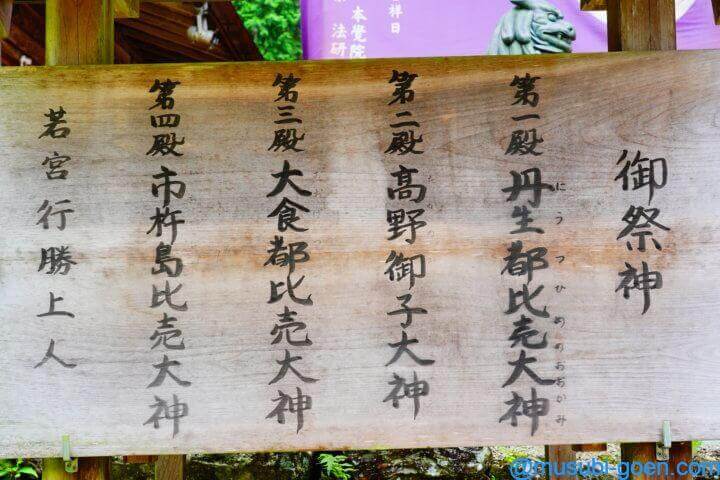 御祭神
第一殿 丹生都比売大神
にうつひめのおおかみ
第二殿 高野御子大神
第三殿 大食都比売大神
第四殿 市杵島比売大神
若宮 行勝上人
祥日
本覺院
法研
@musubi-goen.com